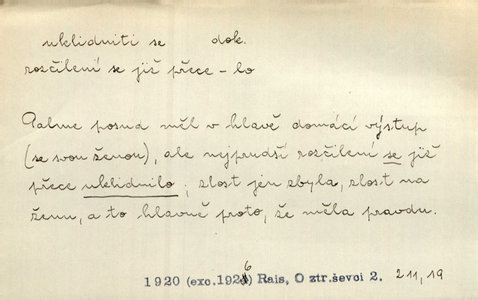 uklidniti se dok.
rozčilení se již přece – lo
Palme posud měl v hlavě domácí výstup
(se svou ženou), ale nejprudší rozčilení se již
přece uklidnilo; zlost jen zbyla, zlost na
ženu, a to hlavně proto, že měla pravdu.
1920 (exc. 1926) Rais, O ztr.ševci 2. 211,19